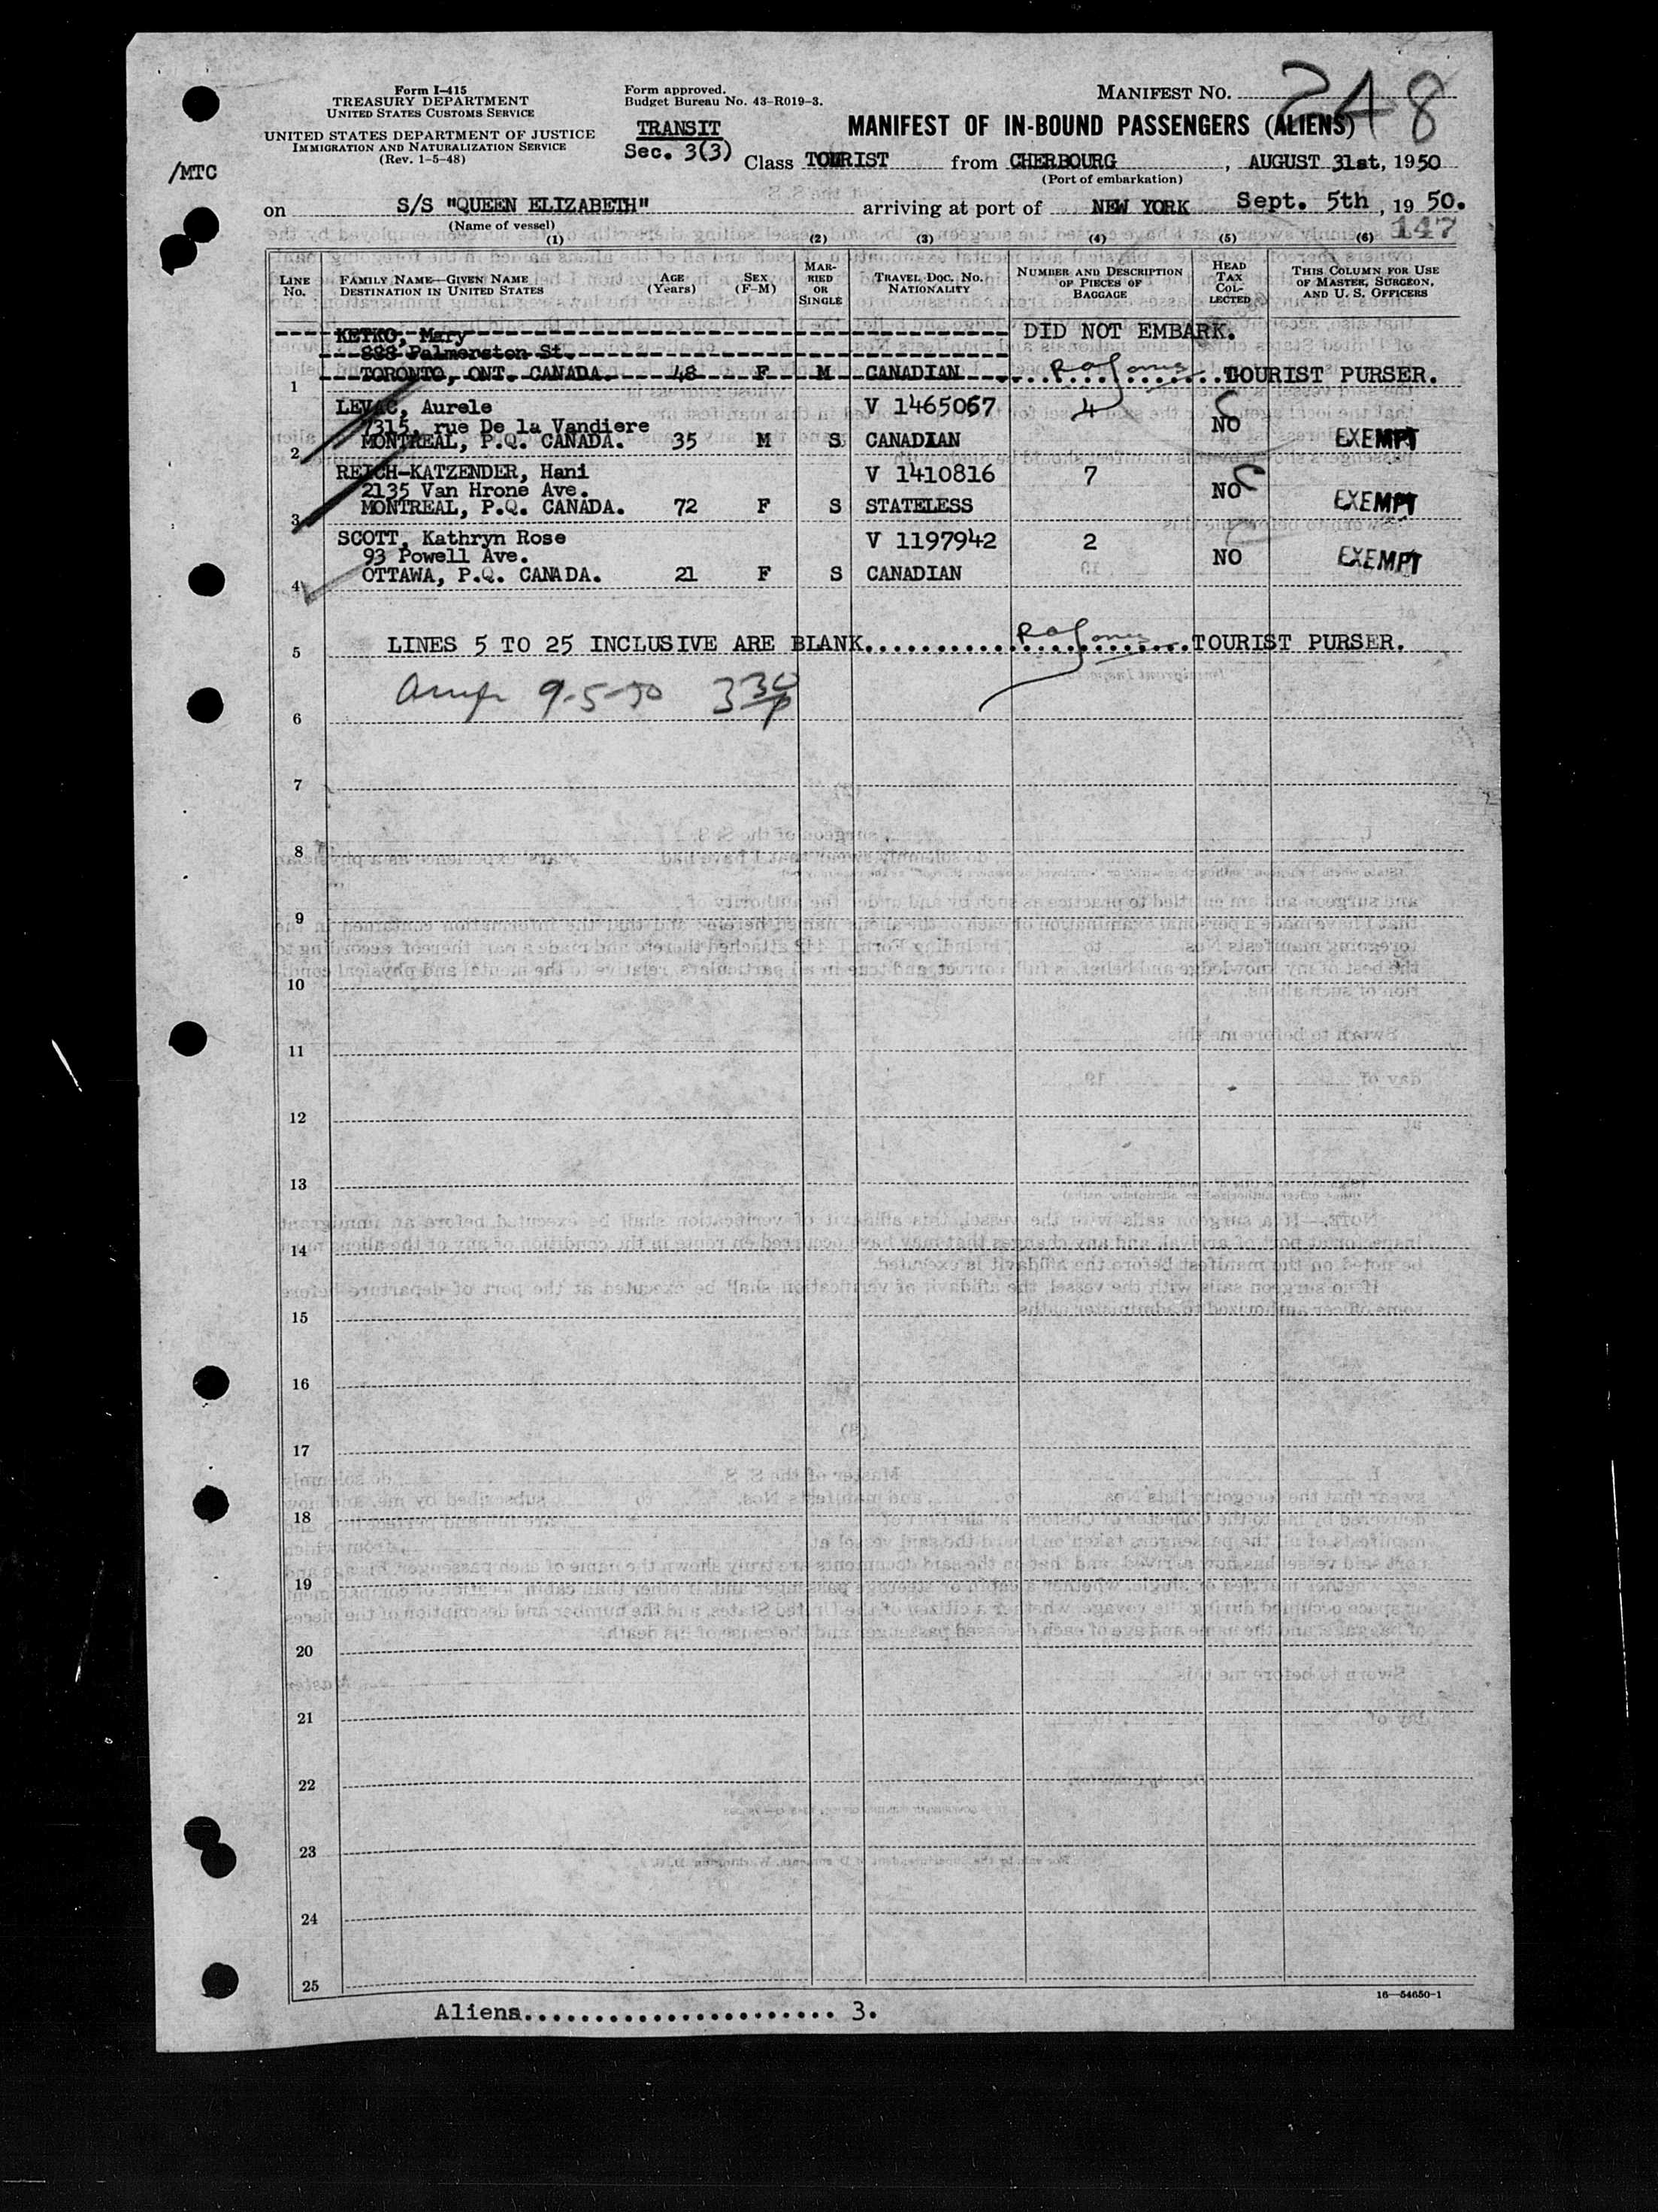 Form I-415
TREASURY DEPARTMENT
UNITED STATES CUSTOMS SERVICE
UNITED STATES DEPARTMENT OF JUSTICE
IMMIGRATION AND NATURALIZATION SERVICE
(Rev. 1-5-48)
/MTC
Form approved.
Budget Bureau No. 43-R019-3.
TRANSIT
Sec. 3(3)
MANIFEST NO. 248
MANIFEST OF IN-BOUND PASSENGERS (ALIENS)
Class TOURIST from CHERBOURG, AUGUST 31st, 1950
(Port of embarkation)
on S/S "QUEEN ELIZABETH" arriving at port of NEW YORK Sept. 5th, 19 50.
(Name of vessel)
147
(1) (2) (3) (4) (5) (6)
LINE No. FAMILY NAME—GIVEN NAME DESTINATION IN UNITED STATES AGE (Years) SEX (F-M) MARRIED OR SINGLE TRAVEL DOC. NO. NATIONALITY NUMBER AND DESCRIPTION OF PIECES OF BAGGAGE HEAD TAX COLLECTED THIS COLUMN FOR USE OF MASTER, SURGEON, AND U. S. OFFICERS
KETKO, Mary DID NOT EMBARK.
888 Palmerston St.
1 TORONTO, ONT. CANADA. 48 F M CANADIAN TOURIST PURSER.
LEVAC, Aurele V 1465067 4
7315, rue De la Vandiere NO
2 MONTREAL, P.Q. CANADA. 35 M S CANADIAN EXEMPT
REICH-KATZENDER, Hani V 1410816 7
2135 Van Hrone Ave. NO
3 MONTREAL, P.Q. CANADA. 72 F S STATELESS EXEMPT
SCOTT, Kathryn Rose V 1197942 2
93 Powell Ave. NO EXEMPT
4 OTTAWA, P.Q. CANADA. 21 F S CANADIAN
5 LINES 5 TO 25 INCLUSIVE ARE BLANK..........TOURIST PURSER.
9-5-50 3 30 p
6
7
8
9
10
11
12
13
14
15
16
17
18
19
20
21
22
23
24
25
16—54650-1
Aliens...................... 3.